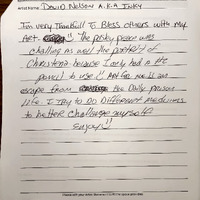 Artist Name: DAVID NELSON A.K.A INKY
I'm very thankfull to Bless others with my
Art. "The pesky pecan was
challing as well the portrit of
Christena because I only had a #2
pencil to use! Art for me is an
escape from the Daily prison
life. I try to DO Different mediums
to better challenge myself
Enjoy!